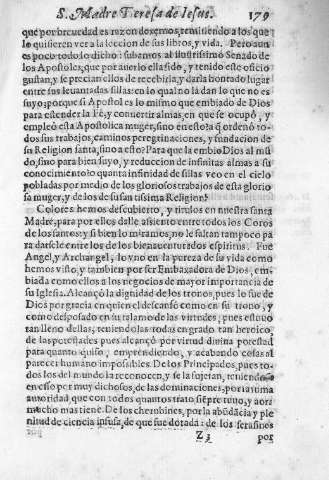 S. Madre Teresa de Iesus. 179
que por breuedad es razon dexemos, remitiendo a los que
lo quisieren ver a la leccion de sus libros, y vida. Pero aun
es poco todo lo dicho: subamos al Illustrissimo Senado de
los Apostoles, que por auerlo ella sido, y tenido este oficio
gustan, y se precian ellos de recebirla, y darla honrado lugar
entre sus leuantadas sillas: en lo qual no la dan lo que no es
suyo; porque si Apostol es lo mismo que embiado de Dios
para estender la Fè, y conuertir almas, en que se ocupò, y
empleò esta Apostolica muger, sino en esto? a q ordenò to-
dos sus trabajos, caminos peregrinaciones, y fundacion de
su Religion santa, sino a esto? Para que la embiò Dios al mũ
do, sino para bien suyo, y reduccion de infinitas almas a su
conocimiento? o quanta infinidad de sillas veo en el cielo
pobladas por medio de los gloriosos trabajos de esta glorio
sa muger, y de los de su santissima Religion!
Colores hemos descubierto, y titulos en nuestra santa
Madre, para por ellos dalle assiento entre todos los Coros
de los santos: y si bien lo miramos, no le faltan tampoco pa
ra darsele entre los de los bienauenturados espiritus. Fue
Angel, y Archangel, lo vno en la pureza de su vida como
hemos visto, y tambien por ser Embaxadora de Dios, em-
biada como ellos a los negocios de mayor importancia de
su Iglesa. Alcançò la dignidad de los tronos, pues lo fue de
Dios por gracia en quien el descansò como en su trono, y
como desposado en su talamo de las virtudes, pues estuuo
tan lleno dellas, teniendolas todas en grado tan heroico,
de las potestades pues alcançò por virtud diuina potestad
para quanto quiso, emprendiendo, y acabando cosas al
parecer humano impossibles. De los Principados, pues to-
dos los del mundo la reconocen, y se la sujetan, teniendose
en esso por muy dichosos, de las dominaciones, por la suma
autoridad que con todos quantos trato siẽpre tuuo, y aora
mucho mas tiene. De los cherubines, por la abũdãcia y ple
nitud de ciencia infusa, de que fue dotada: de los serafines
Z 3 por